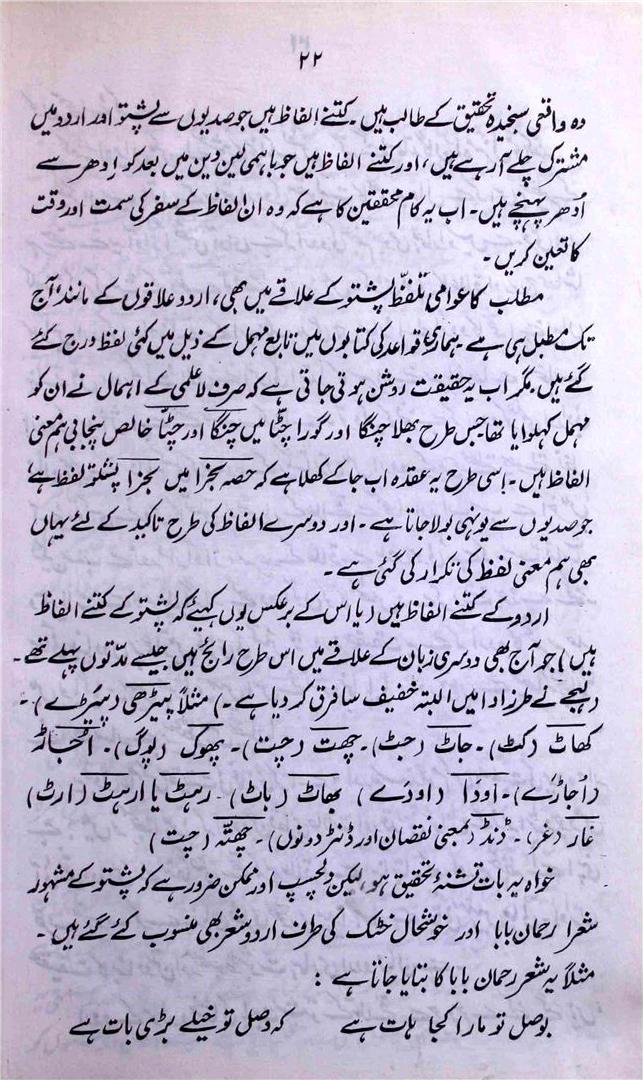 ۲۲
وہ واقعی سنجیدہ تحقیق کے طالب ہیں۔ کتنے الفاظ ہیں جو صدیوں سے پشتو اور اردو میں
مشترک چلے آ رہے ہیں، اور کتنے الفاظ ہیں جو باہمی لین دین میں بعد کو اِدھر سے
اُدھر پہنچے ہیں۔ اب یہ کام محققین کا ہے کہ وہ ان الفاظ کے سفر کی سمت اور وقت
کا تعین کریں۔
مطلب کا عوامی تلفظ پشتو کے علاقے میں بھی، اردو علاقوں کے مانند، آج
تک مطبل ہی ہے۔ ہماری قواعد کی کتابوں میں تابع مہمل کے ذیل میں کئی لفظ درج کئے
گئے ہیں۔ مگر اب یہ حقیقت روشن ہوتی جاتی ہے کہ صرف لاعلمی کے اہمال نے ان کو
مہمل کہلوایا تھا جس طرح بھلا چنگا اور گورا چٹا میں چنگا اور چٹا خالص پنجابی ہم معنی
الفاظ ہیں۔ اسی طرح یہ عقدہ اب جا کے کھلا ہے کہ حصہ بخرا میں بخرا پشتو لفظ ہے،
جو صدیوں سے یونہی بولا جاتا ہے۔ اور دوسرے الفاظ کی طرح تاکید کے لئے یہاں
بھی ہم معنی لفظ کی تکرار کی گئی ہے۔
اردو کے کتنے الفاظ ہیں (یا اس کے برعکس یوں کہیئے کہ پشتو کے کتنے الفاظ
ہیں) جو آج بھی دوسری زبان کے علاقے میں اس طرح رائج ہیں جیسے مدّتوں پہلے تھے۔
(لہجے نے طرزِ ادا میں البتہ خفیف سا فرق کر دیا ہے۔) مثلاً پیڑھی (پیڑے)۔
کھاٹ (کٹ)۔ جاٹ (جٹ)۔ چھت (چت)۔ پھوک (پوک)۔ اجاڑ
(اجاڑے)۔ اودا (اودے) بھاٹ (باٹ)۔ رہٹ یا ارہٹ (ارٹ)
غار (غر)۔ ڈنڈ (بمعنی نقصان اور ڈنٹر دونوں)۔ چھتہ (چت)
خواہ یہ بات تشنۂ تحقیق ہو، لیکن دلچسپ اور ممکن ضرور ہے کہ پشتو کے مشہور
شعرا رحمان بابا اور خوشحال خٹک کی طرف اردو شعر بھی منسوب کئے گئے ہیں۔
مثلاً یہ شعر رحمان بابا کا بتایا جاتا ہے :
بوصلِ تو مارا کجا ہات ہے کہ وصل تو خیلے بڑی بات ہے